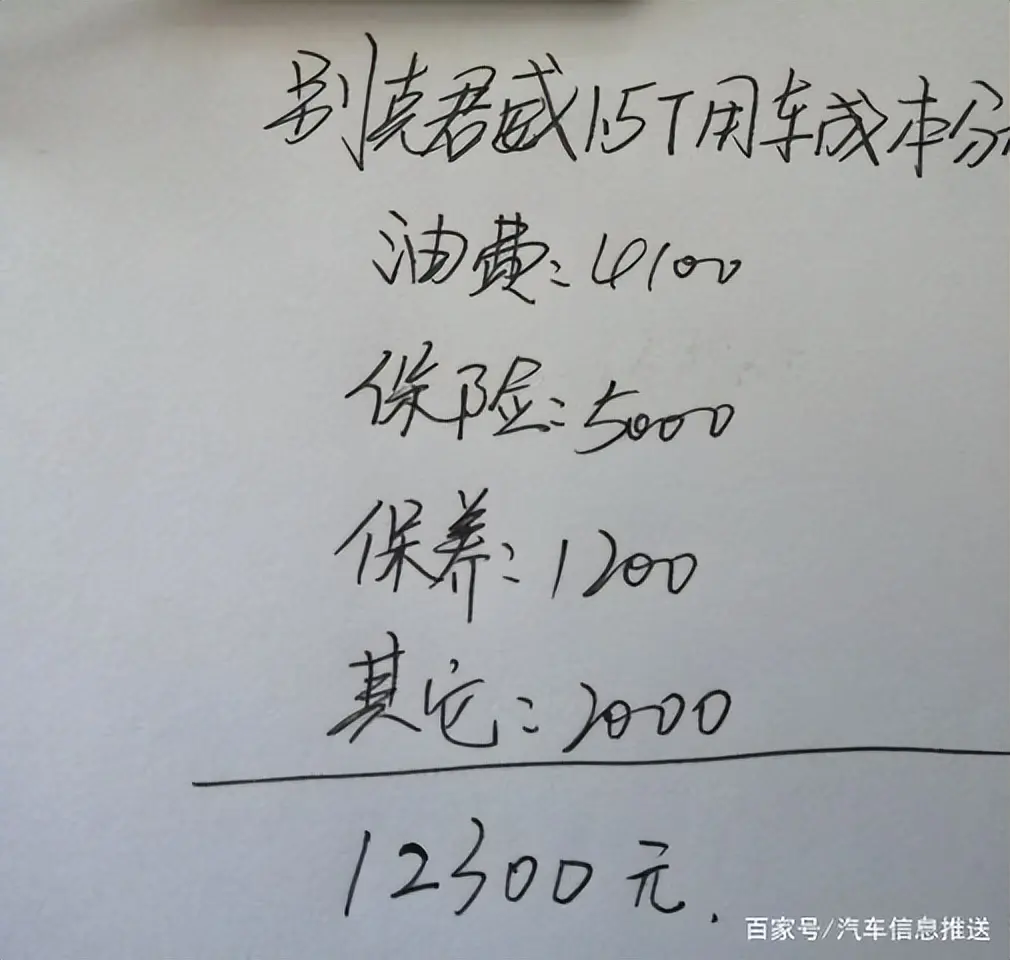 别克君威1.5T用车成本分
油费:4100
保险:5000
保养:1200
其它:2000
12300元.
百家号/汽车信息推送